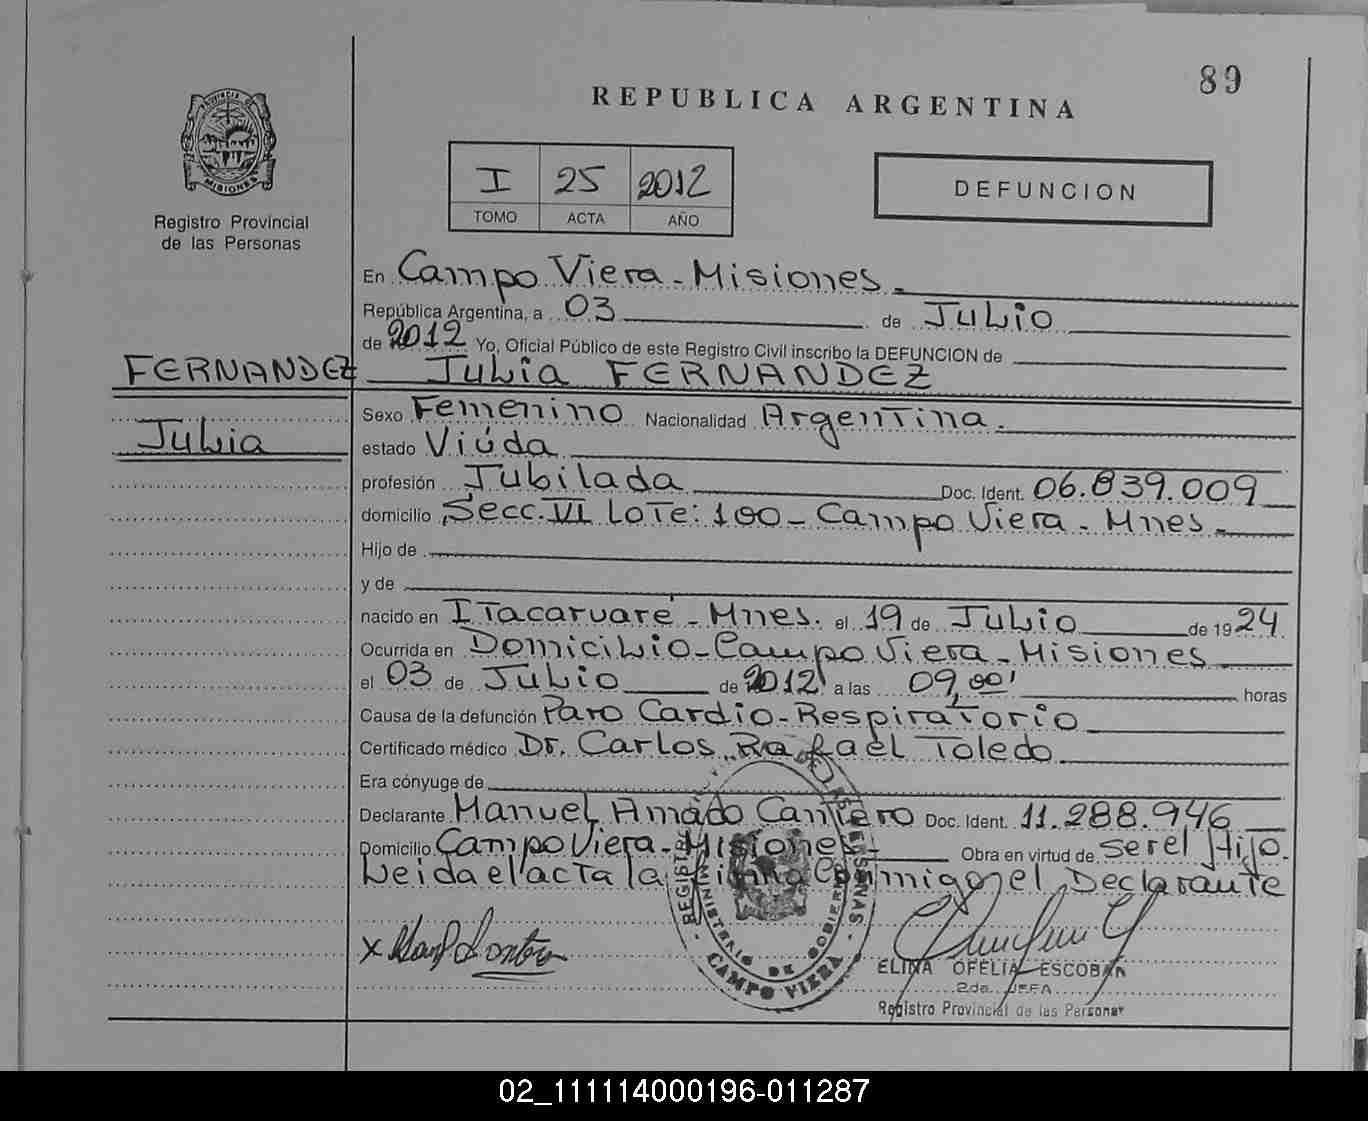 89
REPUBLICA ARGENTINA
PROVINCIA DE
MISIONES
Registro Provincial
de las Personas
I 25 2012
TOMO ACTA AÑO
DEFUNCION
En Campo Viera - Misiones.
República Argentina, a 03 de Julio
de 2012 Yo, Oficial Público de este Registro Civil inscribo la DEFUNCION de
FERNANDEZ Julia FERNANDEZ
Sexo Femenino Nacionalidad Argentina.
Julia
estado Viúda
profesión Jubilada Doc. Ident. 06.839.009
domicilio Secc. VI Lote: 100 - Campo Viera - Mnes -
Hijo de
y de
nacido en Itacaruaré - Mnes. el 19 de Julio de 1924.
Ocurrida en Domicilio - Campo Viera - Misiones
el 03 de Julio de 2012 a las 09,00' horas
Causa de la defunción Paro Cardio-Respiratorio
Certificado médico Dr. Carlos Rafael Toledo
Era cónyuge de
Declarante Manuel Amado Doc. Ident. 11.288.946
Domicilio Campo Viera - Misiones - Obra en virtud de ser el Hijo.
Leida el acta la firma Conmigo, el Declarante
REGISTRO
MINISTERIO DE GOBIERNO
CAMPO VIERA
ELINA OFELIA ESCOBAR
2da. JEFA
Registro Provincial de las Personas
02_111114000196-011287